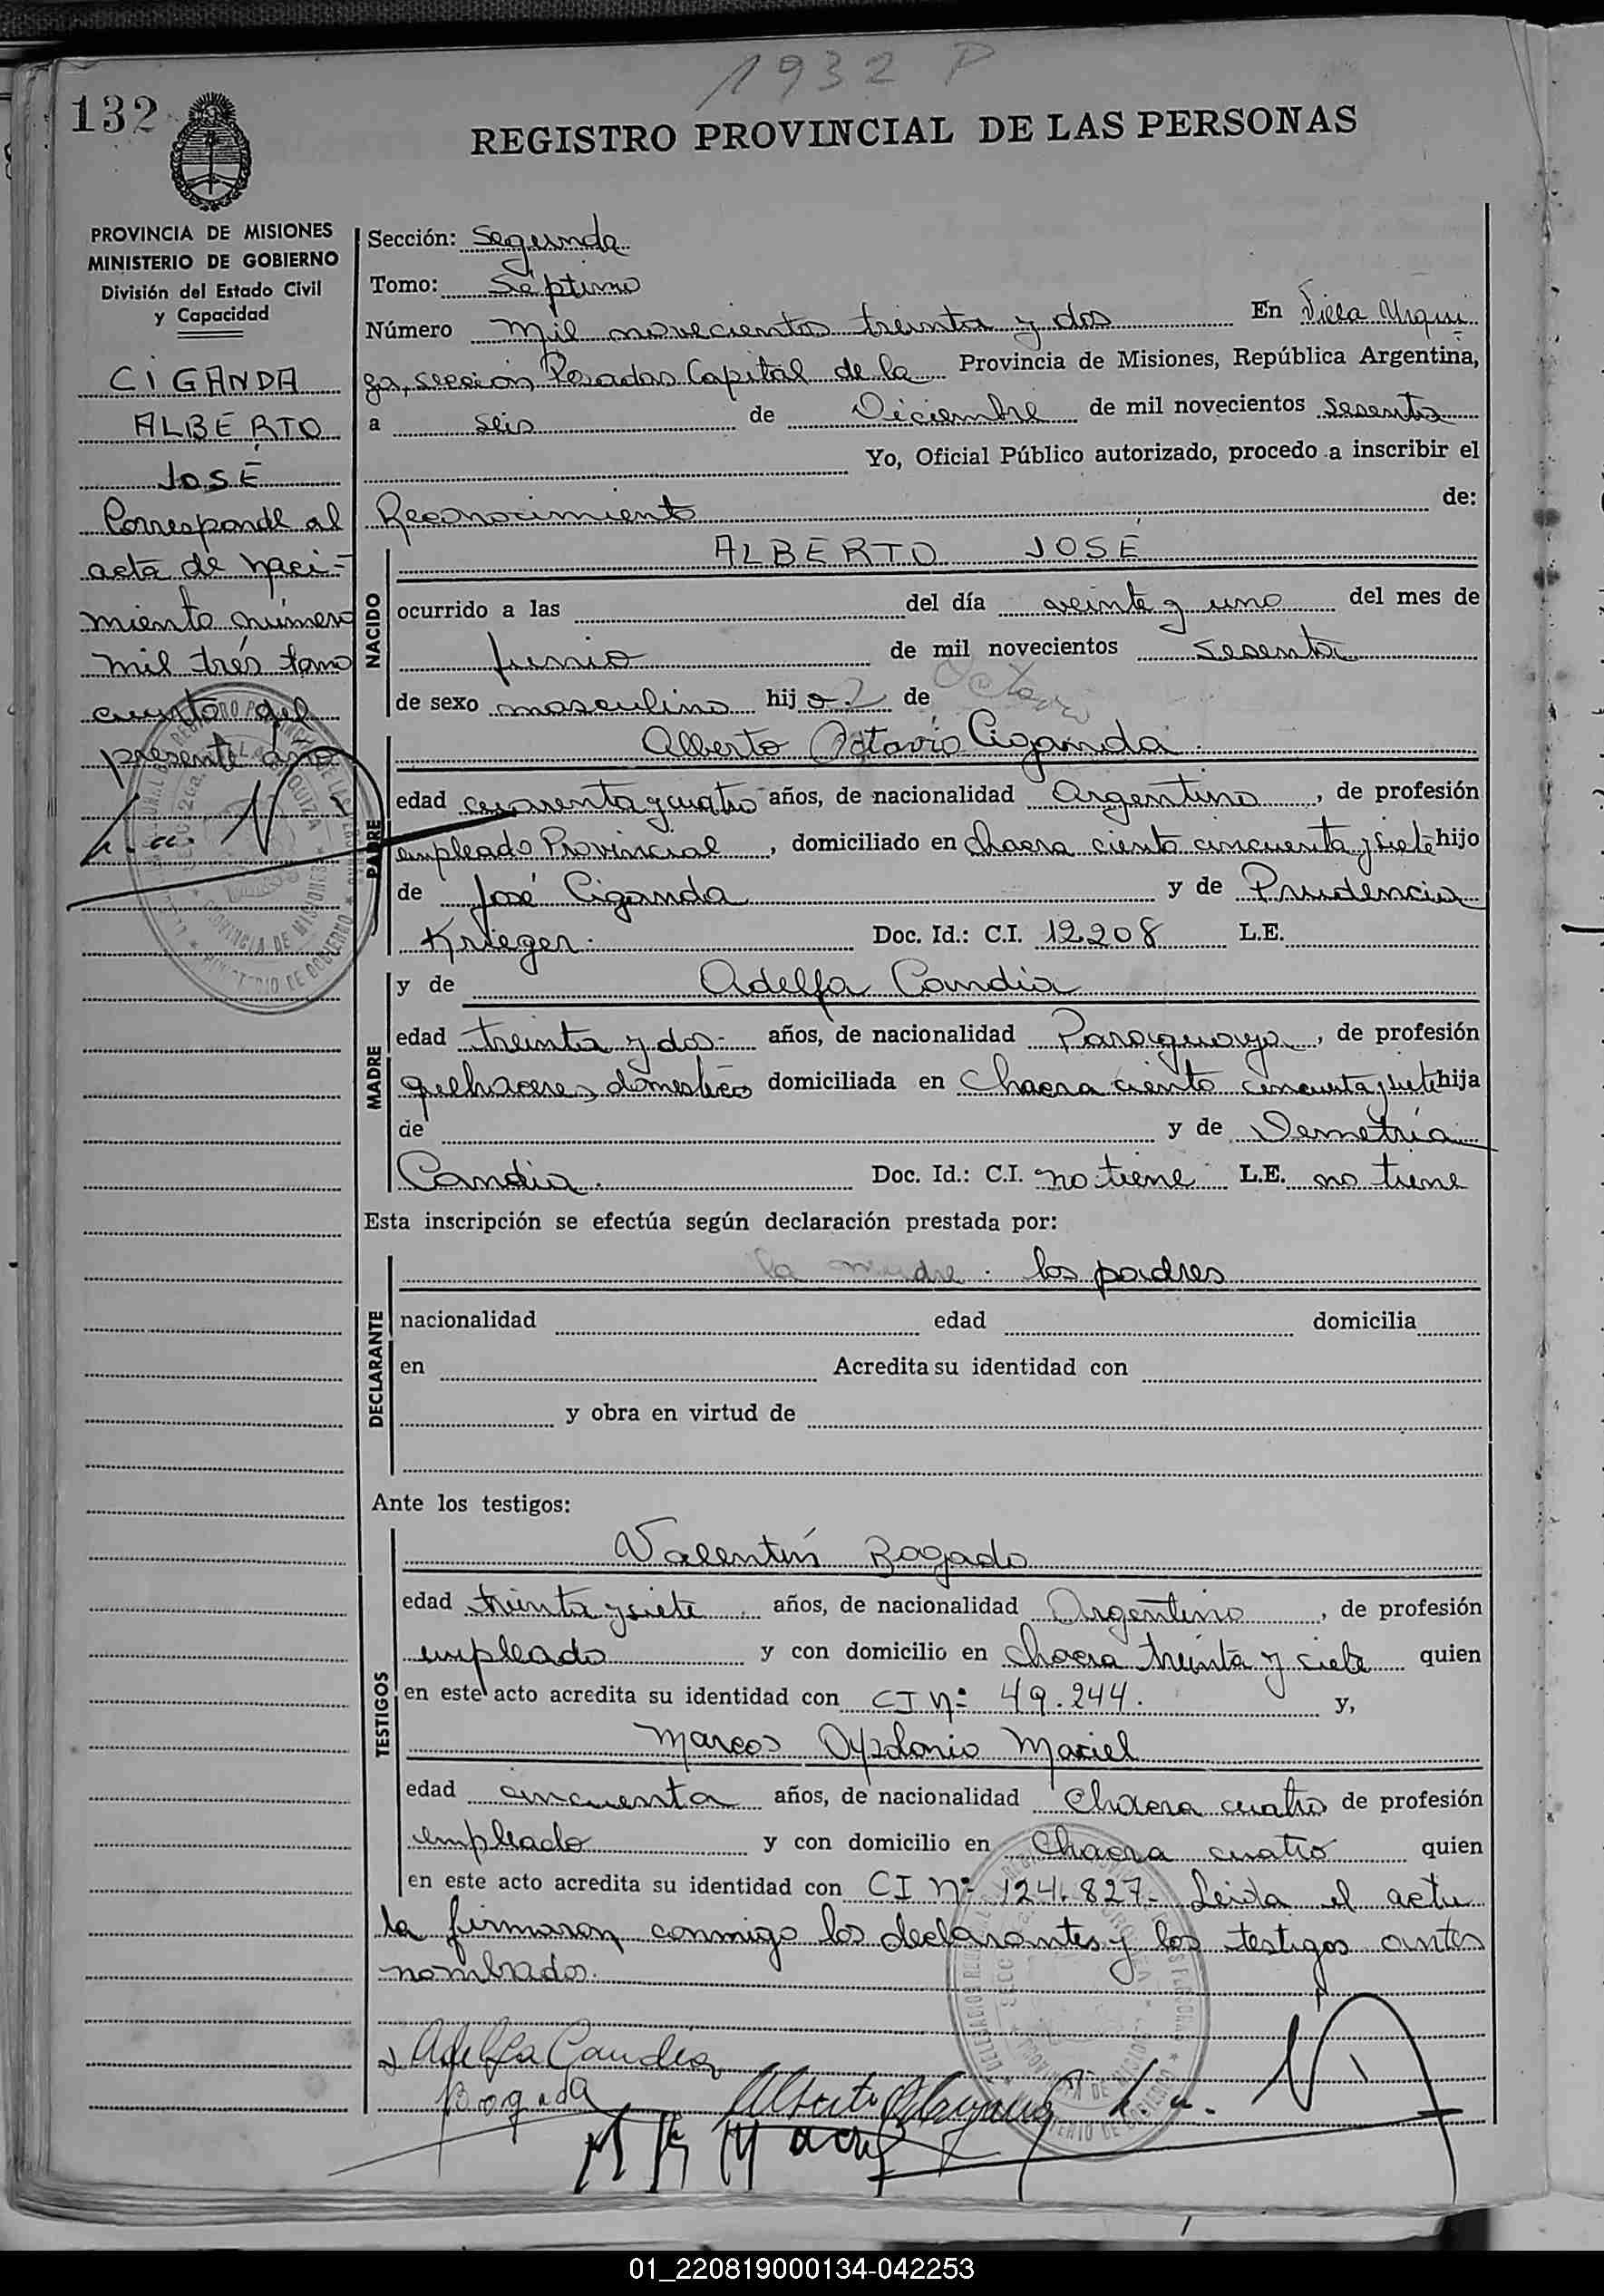 1932 P
132
REGISTRO PROVINCIAL DE LAS PERSONAS
PROVINCIA DE MISIONES
MINISTERIO DE GOBIERNO
División del Estado Civil
y Capacidad
CIGANDA
ALBERTO
JOSÉ
Corresponde al
acta de naci-
miento número
mil trés tomo
cuarto del
presente año
Sección: Segunda
Tomo: Séptimo
Número mil novecientos treinta y dos En Villa Urqui
za, sección Posadas Capital de la Provincia de Misiones, República Argentina,
a seis de Diciembre de mil novecientos sesenta
Yo, Oficial Público autorizado, procedo a inscribir el
Reconocimiento de:
NACIDO
ALBERTO JOSÉ
ocurrido a las del día veinte y uno del mes de
junio de mil novecientos sesenta
de sexo masculino hijo de
Octavio
PADRE
Alberto Octavio Ciganda.
edad cuarenta y cuatro años, de nacionalidad Argentino, de profesión
empleado Provincial, domiciliado en chacra ciento cincuenta y siete hijo
de José Ciganda y de Prudencia
Krieger. Doc. Id.: C.I. 12208 L.E.
MADRE
y de Adelfa Candia
edad treinta y dos- años, de nacionalidad Paraguaya, de profesión
quehaceres domestico domiciliada en Chacra ciento cincuenta y siete hija
de y de Demetria
Candia. Doc. Id.: C.I. no tiene L.E. no tiene
Esta inscripción se efectúa según declaración prestada por:
DECLARANTE
la madre. los padres
nacionalidad edad domicilia
en Acredita su identidad con
y obra en virtud de
Ante los testigos:
TESTIGOS
Valentín Bogado
edad treinta y siete años, de nacionalidad Argentino, de profesión
empleado y con domicilio en chacra treinta y siete quien
en este acto acredita su identidad con CI Nº 49.244. y,
Marcos Maciel
edad cincuenta años, de nacionalidad Chacra cuatro de profesión
empleado y con domicilio en Chacra cuatro quien
en este acto acredita su identidad con CI Nº 124.827- Leida el acta
la firmaron conmigo los declarantes y los testigos antes
nombrados.
Adelfa Candia
Bogado
01_220819000134-042253